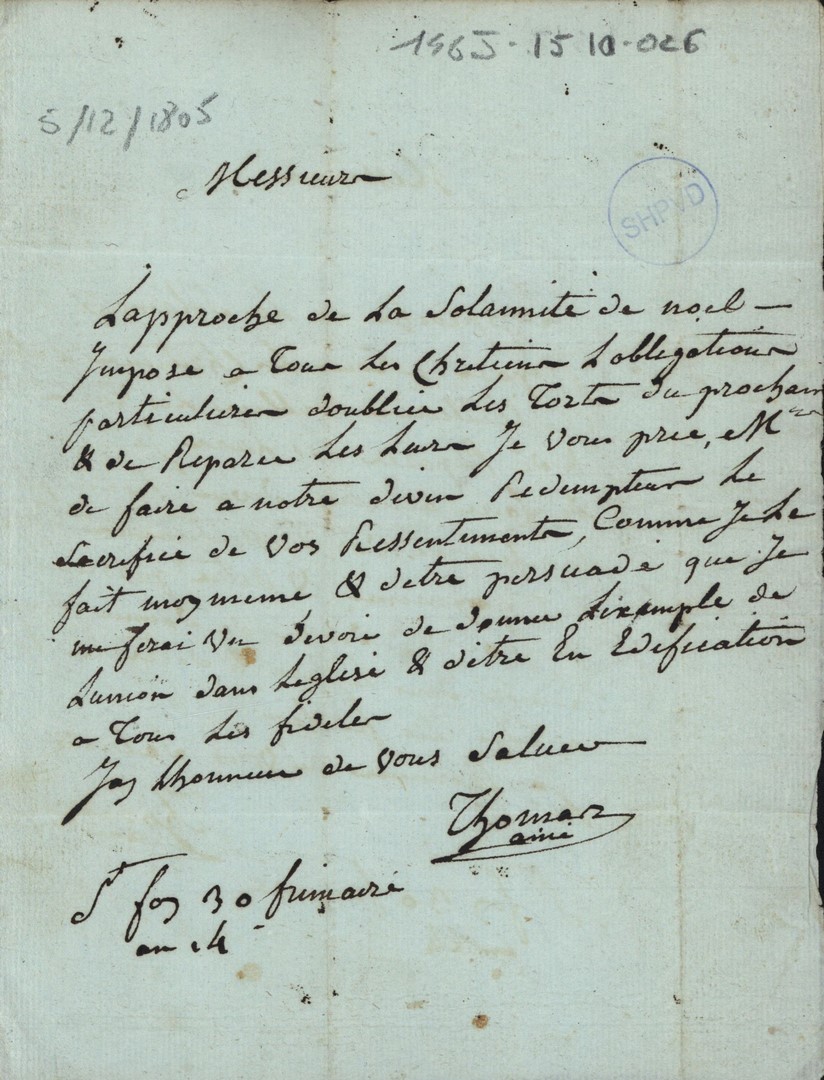 1965-15 10-026
5/12/1805
Messieurs
SHPVD
Lapproche de La Solamnité de noel -
Jmpose a Tous Les Chretiens Lobligations
particulieres doublier Les Torts du prochain
& de Reparer Les Leurs Je vous prie, Mrs
de faire a notre divin Redempteur Le
Sacrifice de Vos Ressentiments, Comme Je Le
fait moy meme & detre persuadé que Je
me ferai Un devoir de donner Lexemple de
Lunion dans Leglise & dètre En Edification
a Tous Les fideles
Jay Lhonneur de vous Saluer
Thomas
ainé
St foy 30 frimaire
an 14